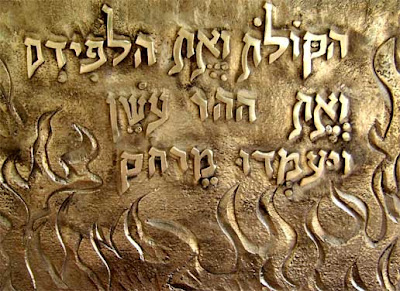 הקולת ואת הלפידם
ואת ההר עשן
ויעמדו מרחק